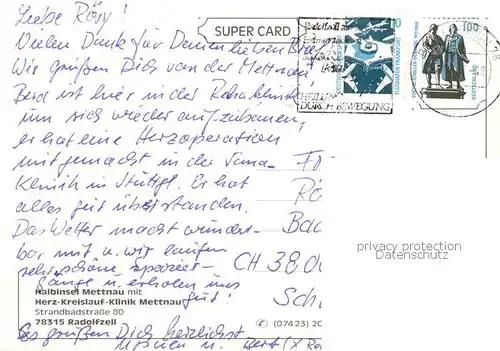 Liebe Rösy!
Vielen Dank für Deinen lieben Brie
Wir grüßen Dich von der Mettnau!
Bert ist hier in der Rehaklinik
um sich wieder aufzubauen,
er hat eine Herzoperation
mitgemacht in der Sana-
Klinik in Stuttgt. Er hat
alles gut überstanden.
Das Wetter macht wunder-
bar mit u. wir laufen
sehr schöne Spazier-
gänge u. erholen uns
gut!
Es grüßen Dich herzlichst
u. Bert
SUPER CARD
HEILUNG
DURCH BEWEGUNG
FLUGHAFEN FRANKFURT
100
DEUTSCHLAND
Bad
CH 38.00
Sch
privacy protection
Datenschutz
Halbinsel Mettnau mit
Herz-Kreislauf-Klinik Mettnau
Strandbadstraße 80
78315 Radolfzell
(07423) 20